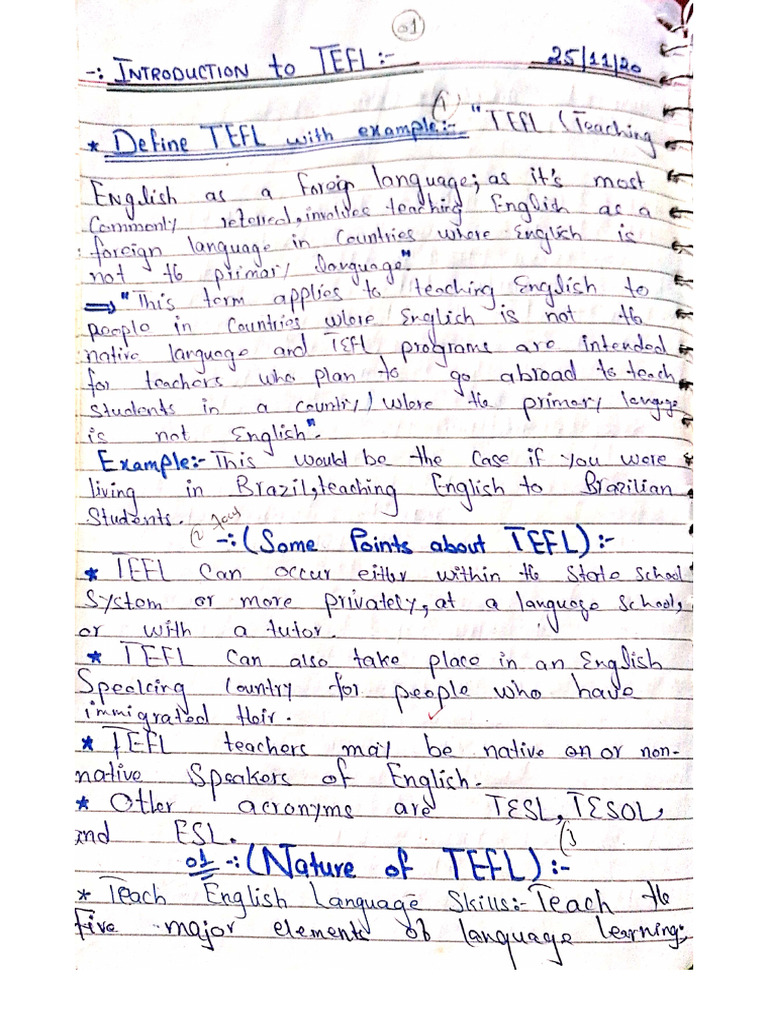 01
-: INTRODUCTION to TEFL:- 25/11/20
(1)
* Define TEFL with example:- "TEFL (Teaching
English as a foreign language; as it's most
Commonly referred, involves teaching English as a
foreign language in Countries where English is
not the primary language"
⇒ "This term applies to teaching English to
people in Countries where English is not the
native language and TEFL programs are intended
for teachers who plan to go abroad to teach
students in a country) where the primary language
is not English".
Example:- This would be the Case if you were
living in Brazil, teaching English to Brazilian
Students.
(2
-: (Some Points about TEFL) :-
* TEFL Can occur either within the State school
System or more privately, at a language school,
or with a tutor.
* TEFL Can also take place in an English
Speaking Country for people who have
immigrated their.
* TEFL teachers may be native on or non-
native Speakers of English.
* Other acronyms are TESL, TESOL,
and ESL.
(3
01 -: (Nature of TEFL) :-
* Teach English Language Skills:- Teach the
five major elements of language learning;